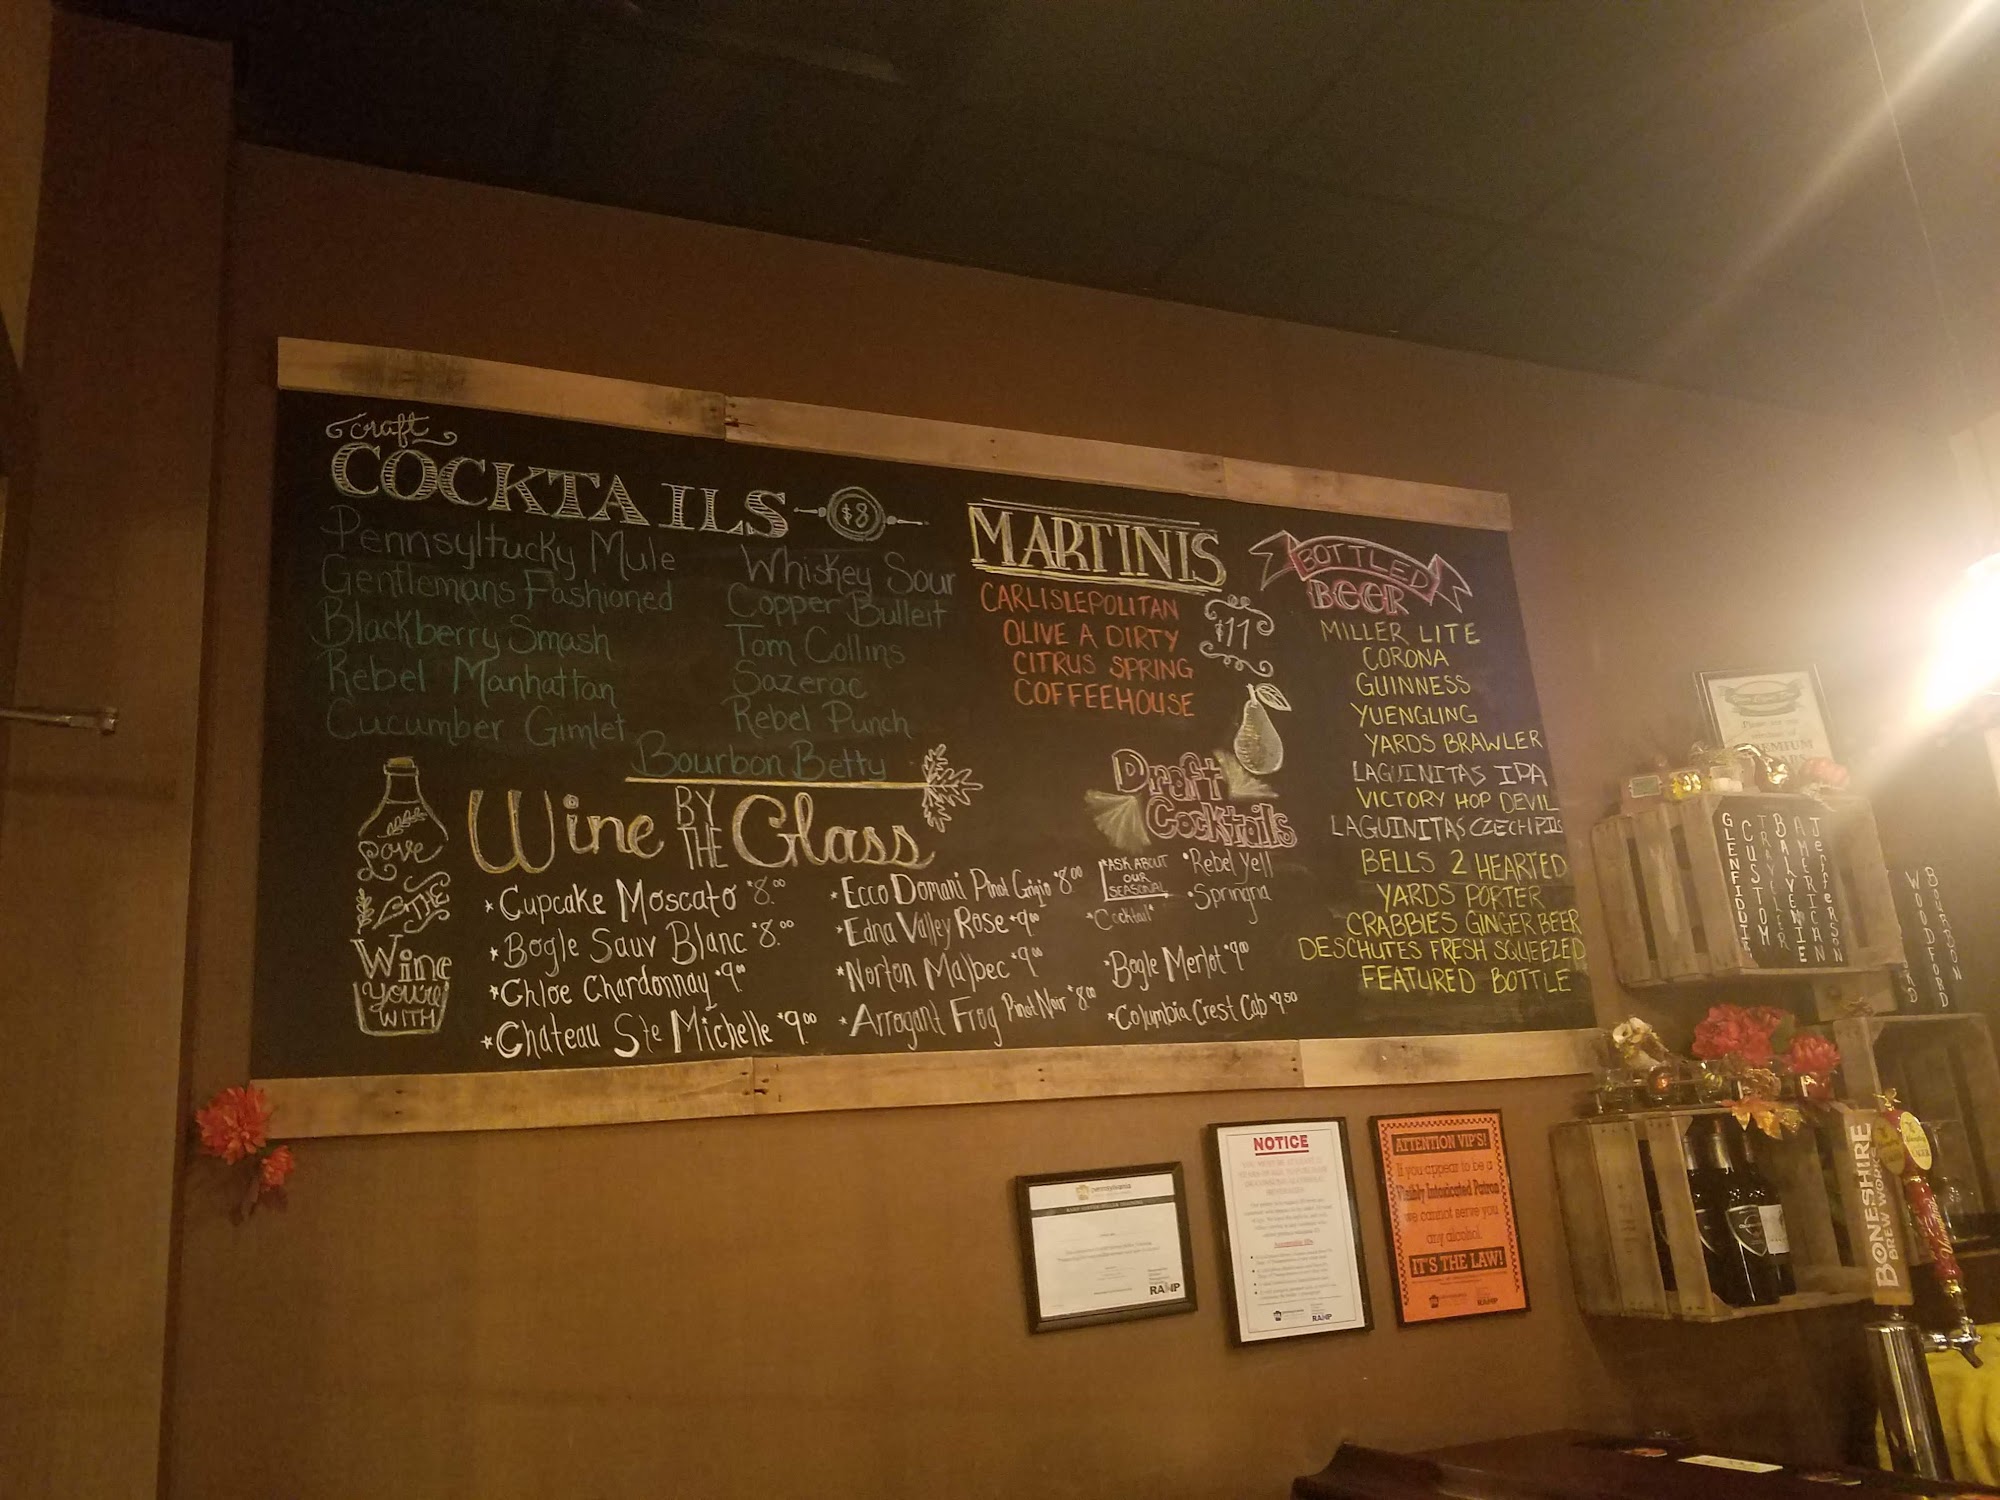 craft
COCKTAILS $8
Pennsyltucky Mule
Gentlemans Fashioned
Blackberry Smash
Rebel Manhattan
Cucumber Gimlet
Whiskey Sour
Copper Bulleit
Tom Collins
Sazerac
Rebel Punch
Bourbon Betty
MARTINIS
$11
CARLISLEPOLITAN
OLIVE A DIRTY
CITRUS SPRING
COFFEEHOUSE
BOTTLED
BEER
MILLER LITE
CORONA
GUINNESS
YUENGLING
YARDS BRAWLER
LAGUINITAS IPA
VICTORY HOP DEVIL
LAGUINITAS CZECH PILS
BELLS 2 HEARTED
YARDS PORTER
CRABBIES GINGER BEER
DESCHUTES FRESH SQUEEZED
FEATURED BOTTLE
Love
THE
Wine
You're
WITH
Wine BY THE Glass
*Cupcake Moscato *8.00
*Bogle Sauv Blanc *8.00
*Chloe Chardonnay *9.00
*Chateau Ste Michelle *9.00
*Ecco Domani Pinot Grigio *8.00
*Edna Valley Rose *9.00
*Norton Malbec *9.00
*Arrogant Frog Pinot Noir *8.00
*Bogle Merlot *9.00
*Columbia Crest Cab *9.50
Draft
Cocktails
*ASK ABOUT
OUR
SEASONAL
*Cocktail*
*Rebel Yell
*Springria
GLENFIDDITE
CUSTOM
TRAVELLER
BALVENIE
AMERICAN
Jefferson
WOODFORD
BOURBON
pennsylvania
RAMP
NOTICE
pennsylvania
RAMP
ATTENTION VIP'S!
If you appear to be a
Visibly Intoxicated Patron
we cannot serve you
any alcohol.
IT'S THE LAW!
RAMP
BONESHIRE
BREW WORKS
Yuengling
LAGER